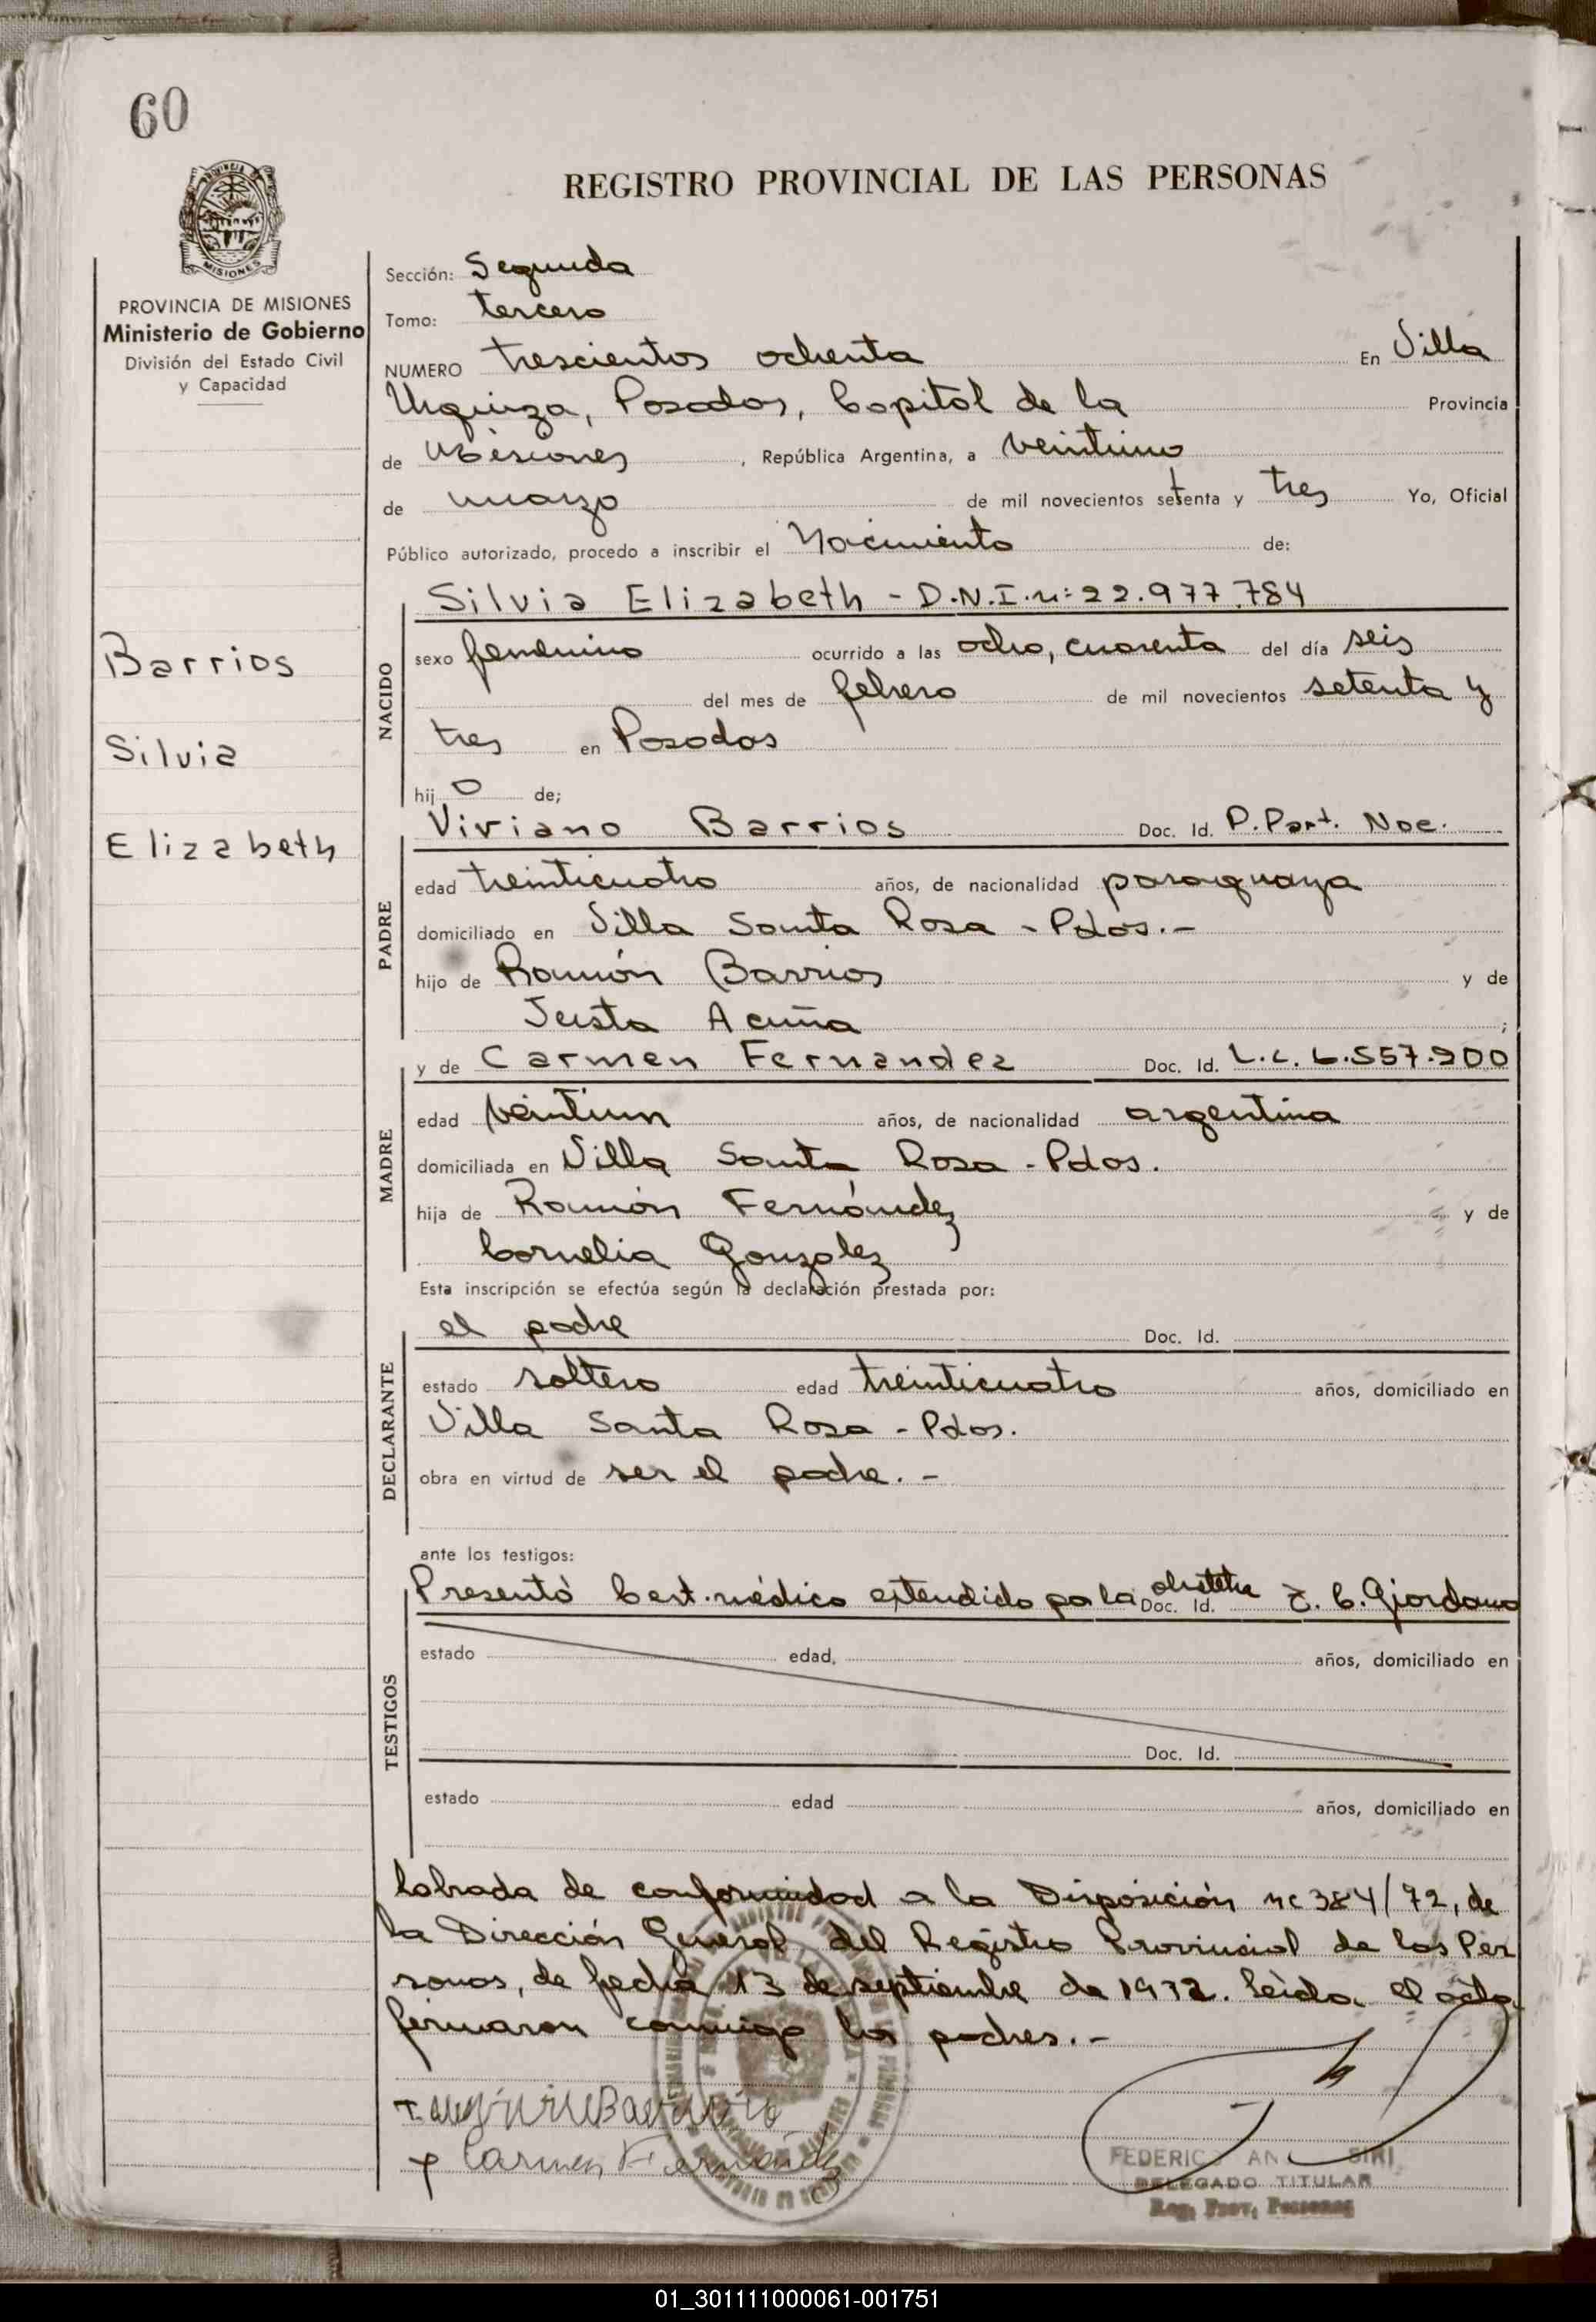 60
REGISTRO PROVINCIAL DE LAS PERSONAS
MISIONES
PROVINCIA DE MISIONES
Ministerio de Gobierno
División del Estado Civil
y Capacidad
Barrios
Silvia
Elizabeth
Sección: Segunda
Tomo: tercero
NUMERO trescientos ochenta En Villa
Urquiza, Posadas, Capital de la Provincia
de Misiones, República Argentina, a veintiuno
de marzo de mil novecientos setenta y tres Yo, Oficial
Público autorizado, procedo a inscribir el Nacimiento de:
NACIDO
Silvia Elizabeth - D.N.I. n: 22.977.784
sexo femenino ocurrido a las ocho, cuarenta del día seis
del mes de febrero de mil novecientos setenta y
tres en Posadas
hij o de;
PADRE
Viviano Barrios Doc. Id. P. Part. Nac.
edad treinticuatro años, de nacionalidad paraguaya
domiciliado en Villa Santa Rosa - Pdas.-
hijo de Ramón Barrios y de
Justa Acuña;
MADRE
y de Carmen Fernandez Doc. Id. L.C. 6.557.900
edad veintiun años, de nacionalidad argentina
domiciliada en Villa Santa Rosa - Pdas.
hija de Ramón Fernández y de
Cornelia Gonzalez
Esta inscripción se efectúa según la declaración prestada por:
DECLARANTE
el padre Doc. Id.
estado soltero edad treinticuatro años, domiciliado en
Villa Santa Rosa - Pdas.
obra en virtud de ser el padre. -
ante los testigos:
TESTIGOS
Presentó Cert. médico extendido por la obstetra Doc. Id. Z. C. Giordano
estado edad, años, domiciliado en
Doc. Id.
estado edad años, domiciliado en
labrada de conformidad a la Disposición nº 384/72, de
la Dirección General del Registro Provincial de las Per
sonas, de fecha 13 de septiembre de 1972. Leída el acta
firmaron conmigo los padres. -
Carmen Fernández
FEDERICO AN SIRI
DELEGADO TITULAR
Reg. Prov. Personas
01_301111000061-001751